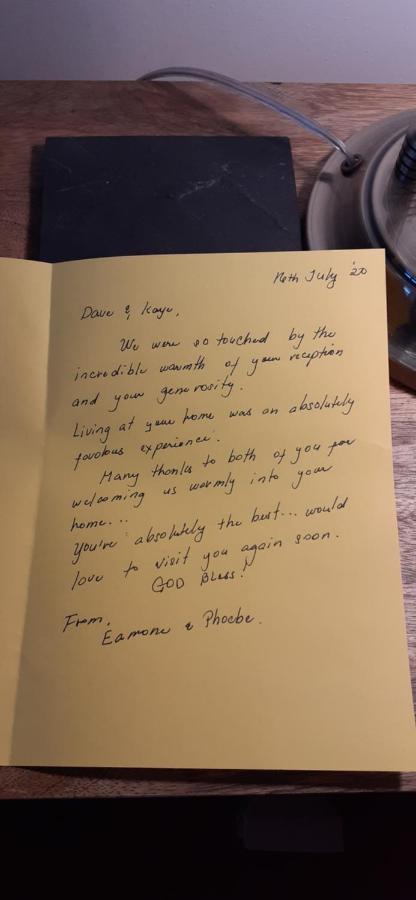 July '20
Dave & Kaye,
We were so touched by the
incredible warmth of your reception
and your generosity.
Living at your home was an absolutely
favobus experience.
Many thanks to both of you for
welcoming us warmly into your
home...
You're absolutely the best... would
love to visit you again soon.
GOD BLess!
From,
Eamone & Phoebe.